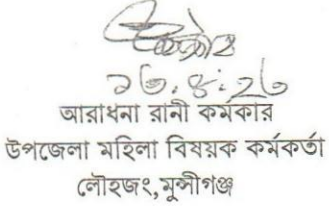 ১৬.৪.২৬
আরাধনা রানী কর্মকার
উপজেলা মহিলা বিষয়ক কর্মকর্তা
লৌহজং,মুন্সীগঞ্জ